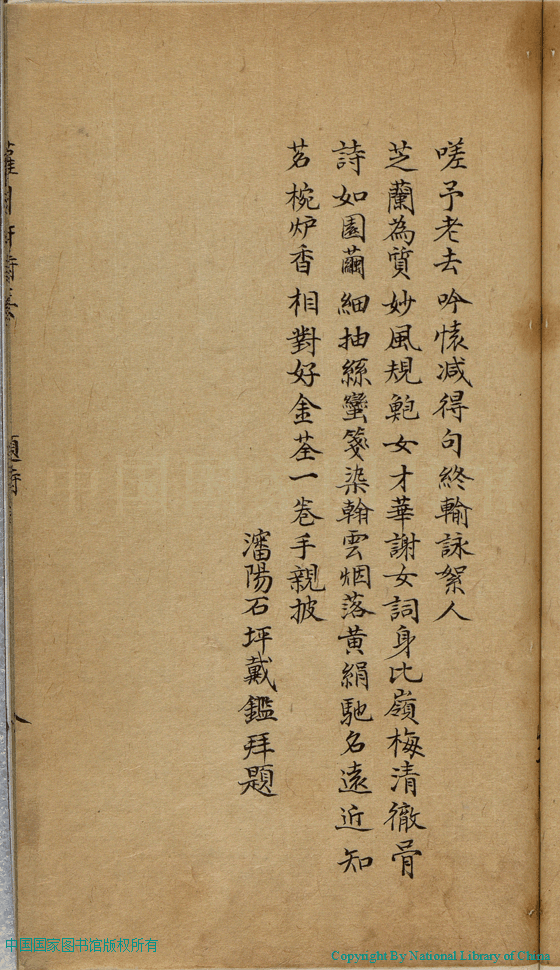 嗟予老去吟懐减得句終輸詠絮人
芝蘭為質妙風規鮑女才華謝女詞身比嶺梅清徹骨
詩如園繭細抽絲蠻箋染翰雲烟落黄絹馳名遠近知
茗椀炉香相對好金荃一卷手親披
瀋陽石坪戴鑑拜題
題詩
中国国家图书馆版权所有
Copyright By National Library of China